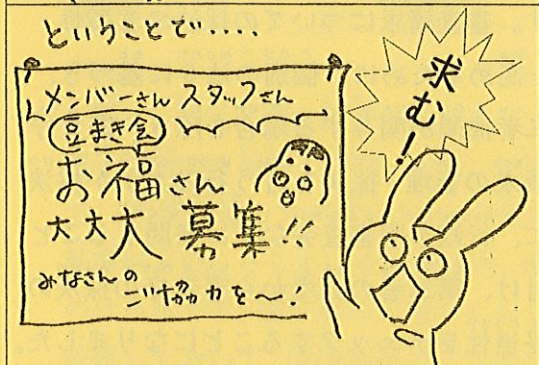 ということで‥‥
メンバーさん スタッフさん
豆まき会
お福さん
大大大募集!!
みなさんの
ご協力を〜!
求む!